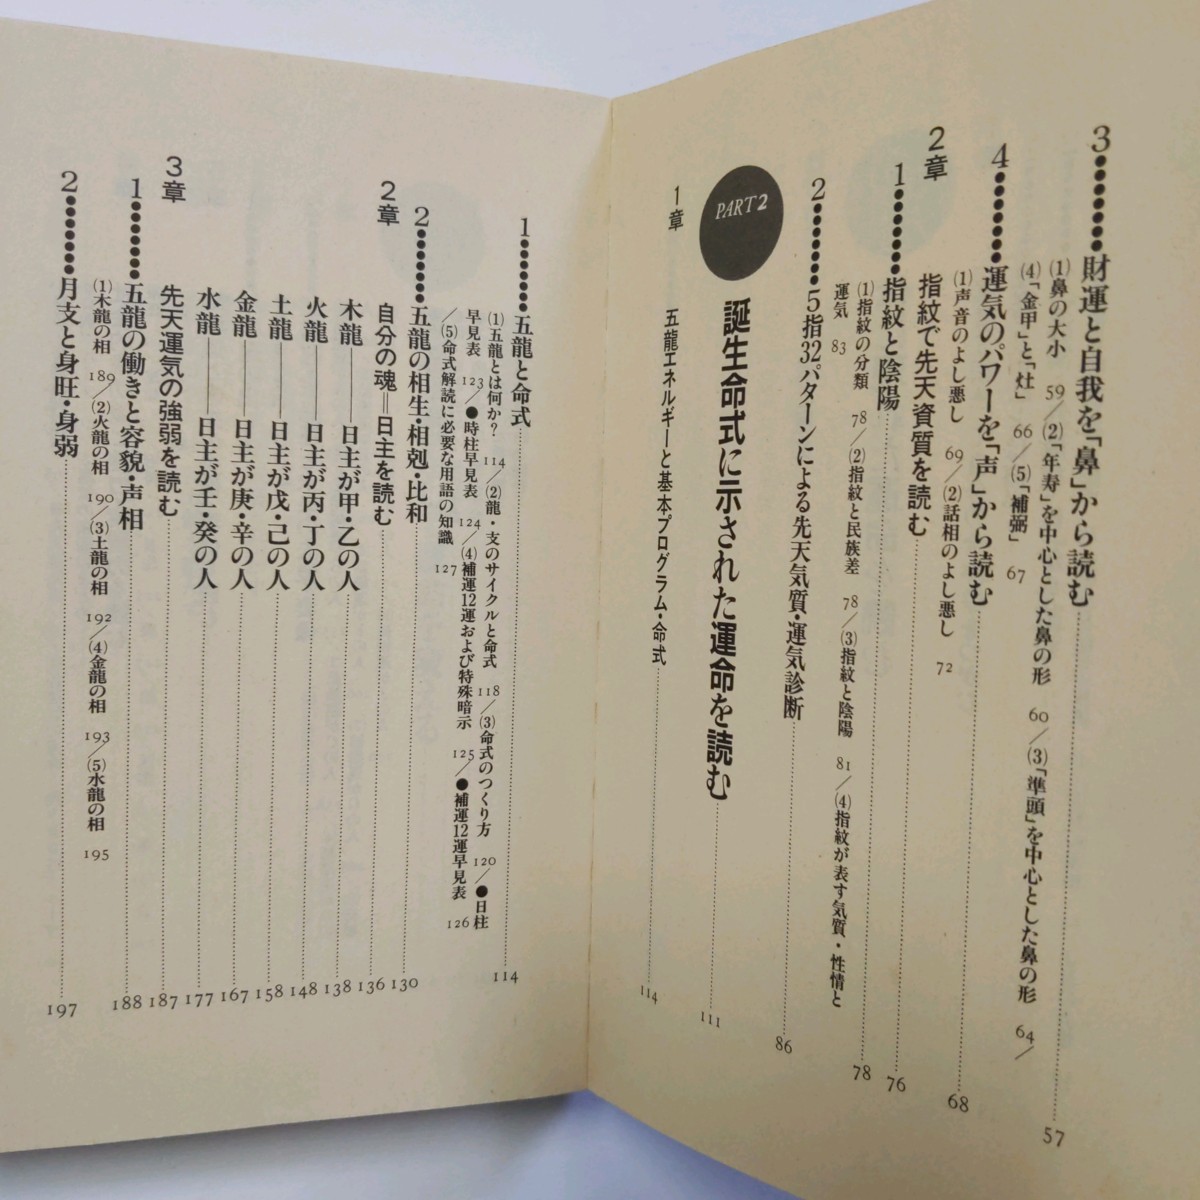 3●●●●●●財運と自我を「鼻」から読む 57
(1)鼻の大小 59/(2)「年寿」を中心とした鼻の形 60/(3)「準頭」を中心とした鼻の形 64/
(4)「金甲」と「灶」 66/(5)「補弼」 67
4●●●●●●運気のパワーを「声」から読む 68
(1)声音のよし悪し 69/(2)話相のよし悪し 72
2章 指紋で先天資質を読む 76
1●●●●●●指紋と陰陽 78
(1)指紋の分類 78/(2)指紋と民族差 78/(3)指紋と陰陽 81/(4)指紋が表す気質・性情と
運気 83
2●●●●●●5指32パターンによる先天気質・運気診断 86
PART2 誕生命式に示された運命を読む 111
1章 五龍エネルギーと基本プログラム・命式 114
1●●●●●●五龍と命式 114
(1)五龍とは何か? 114/(2)龍・支のサイクルと命式 118/(3)命式のつくり方 120/●日柱
早見表 123/●時柱早見表 124/(4)補運12運および特殊暗示 125/●補運12運早見表 126
/(5)命式解読に必要な用語の知識 127
2●●●●●●五龍の相生・相剋・比和 130
2章 自分の魂＝日主を読む 136
木龍――日主が甲・乙の人 138
火龍――日主が丙・丁の人 148
土龍――日主が戊・己の人 158
金龍――日主が庚・辛の人 167
水龍――日主が壬・癸の人 177
3章 先天運気の強弱を読む 187
1●●●●●●五龍の働きと容貌・声相 188
(1)木龍の相 189/(2)火龍の相 190/(3)土龍の相 192/(4)金龍の相 193/(5)水龍の相 195
2●●●●●●月支と身旺・身弱 197